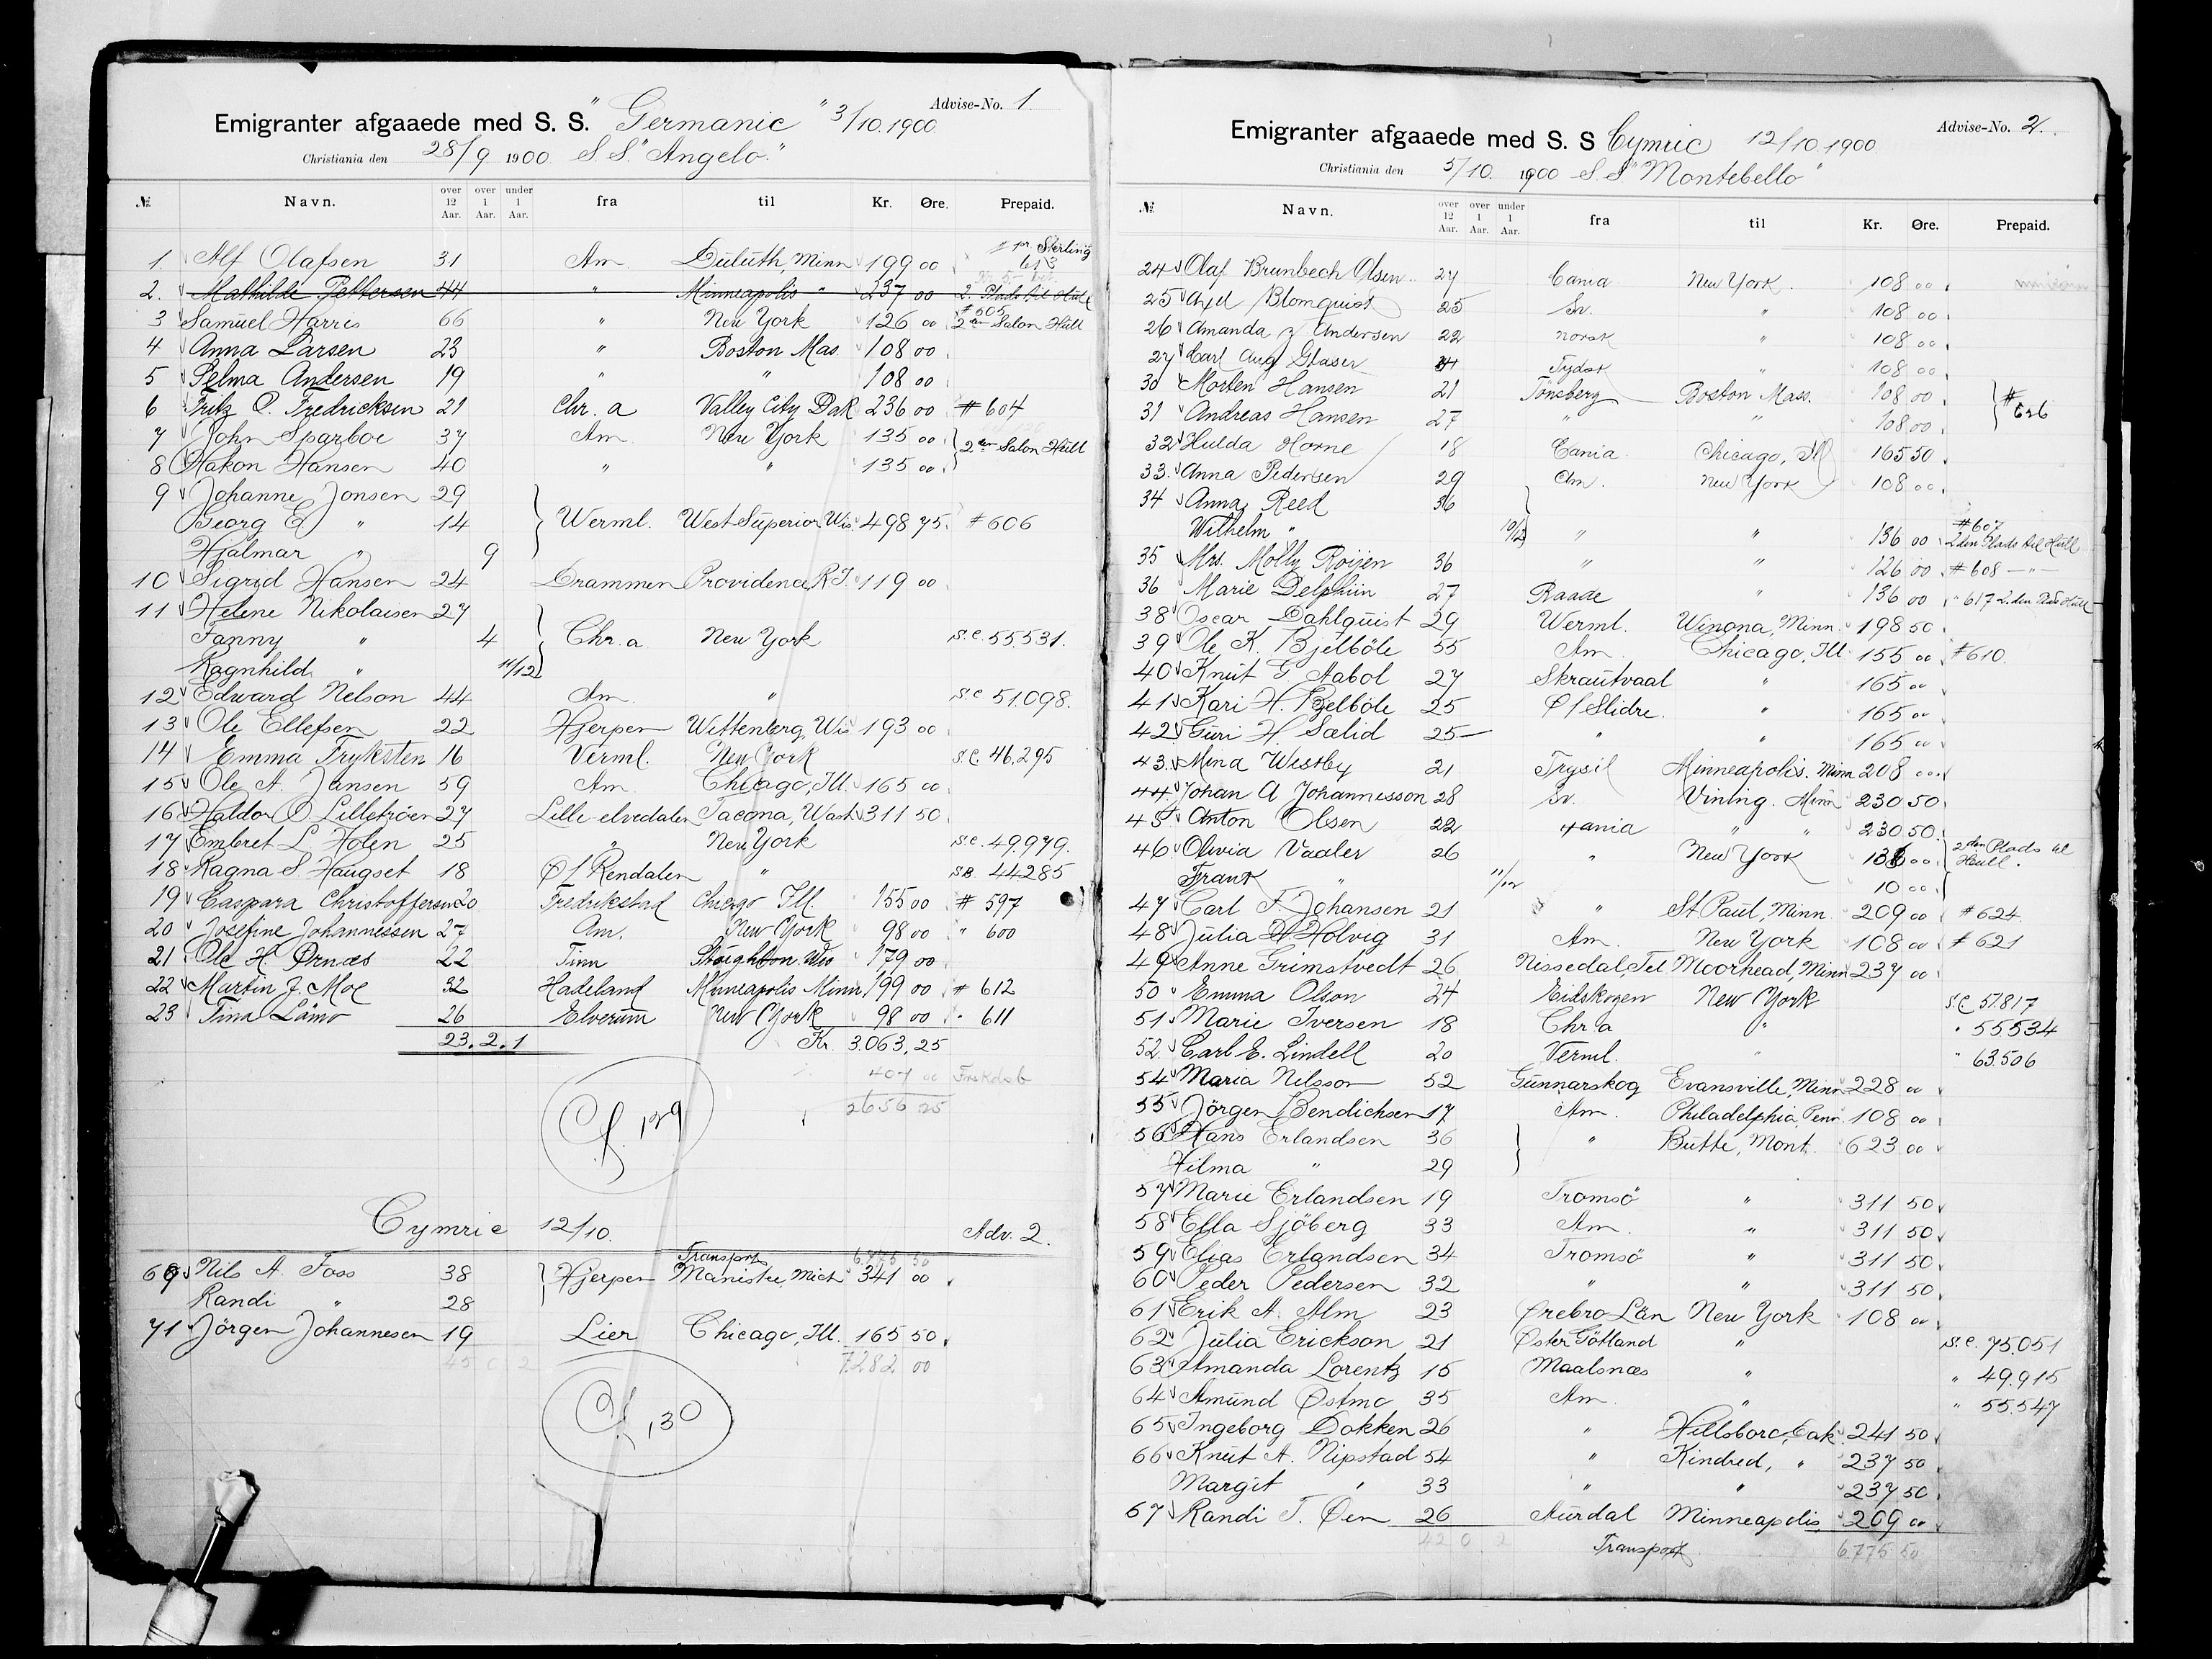 Advise-No. 1
Emigranter afgaaede med S. S. "Germanic" 3/10.1900.
Christiania den 28/9 1900 S. S. "Angelo."
№ Navn. over 12 Aar. over 1 Aar. under 1 Aar. fra til Kr. Øre. Prepaid.
" pr. Sterling
1. Alf Olafsen 31 Am. Duluth, Minn 199 00 613
2. Mathilde Pettersen 44 " Minneapolis " 237 00 2. Plads til Hull
3 Samuel Harris 66 " New York 126 00 # 605 2den Salon Hull
4 Anna Larsen 23 " Boston Mas. 108 00
5 Selma Andersen 19 " " 108 00
6 Fritz O. Fredricksen 21 Chr. a Valley City Dak 236 00 # 604
7 John Sparboe 37 Am. New York 135 00 } 2den Salon Hull
8 Hakon Hansen 40 " " 135 00
9 Johanne Jonsen 29
Georg E. " 14 } Werml. West Superior Wis. 498 75. # 606
Hjalmar " 9
10 Sigrid Hansen 24 Drammen Providence, R.I. 119 00
11 Helene Nikolaisen 27
Fanny " 4 } Chr. a New York s.c. 55531.
Ragnhild " 11/12
12 Edward Nelson 44 Am. " s.c 51098.
13 Ole Ellefsen 22 Hjerpen Wittenberg, Wis 193 00
14 Emma Tryksten 16 Verml. New York s.c. 46.295
15 Ole A. Jansen 59 Am. Chicago, Ill. 165 00
16 Haldor O. Lilletröen 27 Lille-elvedalen Tacoma, Wash 311 50
17 Embret L. Holen 25 " New York s.c. 49.979.
18 Ragna S. Haugset 18 Ø/Rendalen " SB 44285
19 Caspara Christoffersen 20 Fredrikstad Chicago Ill. 155 00 # 597
20 Josefine Johannessen 27 Am. New York 98 00 " 600
21 Ole H. Ornæs 22 Tinn Stoughton Wis 179 00
22 Martin J. Moe 32 Hadeland Minneapolis Minn 199 00 # 612
23 Tina Lämo 26 Elverum New York 98 00 " 611
23. 2. 1 Kr. 3.063, 25
407 00
2656 25
Cf. 129
Cymric 12/10. Adv. 2.
Transport 6,775 50
69 Nils A. Foss 38 } Hjerpen Manistee, Mich 341 00
Randi " 28
71 Jörgen Johannesen 19 Lier Chicago, Ill. 165 50
45 0 2 7.282. 00
Cf. 130
Advise-No. 2.
Emigranter afgaaede med S. S Cymric 12/10.1900
Christiania den 5/10. 1900 S. S "Montebello"
№ Navn. over 12 Aar. over 1 Aar. under 1 Aar. fra til Kr. Øre. Prepaid.
24 Olaf Brunbech Olsen 27 Cania New York. 108 00
25 Axel Blomquist 25 Sv. " 108 00
26 Amanda Andersen 22 norsk " 108 00
27 Carl Aug Glaser Tydsk " 108 00
30 Morten Hansen 21 Tönsberg Boston Mass. 108 00 } # 626
31 Andreas Hansen 27 " " 108 00
32 Hulda Horne 18 Cania Chicago, Ill 165 50
33. Anna Pedersen 29 Am. New York 108 00
34 Anna Reed 36
Wilhelm " 10/12 } " " 136 00 # 607 2den Plads til Hull
35 Mrs. Molly Roijen 36 " " 126 00 # 608 — " —
36 Marie Delphin 27 Raade 136 00 " 617 2.den Plads Hull
38 Oscar Dahlquist 29 Werml. Winona, Minn. 198 50
39 Ole K. Bjelböle 55 Am. Chicago, Ill. 155 00 # 610.
40 Knut G Aabol 27 Skrautvaal " 165 00
41 Kari H. Bjelböle 25 Ø/Slidre. " 165 00
42 Guri H Sælid 25 " " 165 00
43. Mina Westby 21 Trysil Minneapolis. Minn 208 00
44. Johan A Johannesson 28 Sv. Vining. Minn 230 50
45 Anton Olsen 22 Xania " " 230 50
46. Olivia Vaaler 26 " New York 136 00 } 2den Plads til Hull.
Frank " 11/12 10 00
47 Carl F. Johansen 21 " St Paul, Minn. 209 00 # 624.
48 Julia H Holvig 31 Am. New York 108 00 # 621
49 Anne Grimstvedt 26 Nissedal, Tel Moorhead, Minn 237 00
50 Emma Olson 24 Eidskogen New York s.c 51.817
51 Marie Iversen 18 Chr a " " 55534
52. Carl E. Lindell 20 Verml. " " 63506
54 Maria Nilsson 52 Gunnarskog Evansville, Minn. 228 00
55 Jörgen Bendichsen 17 Am. Philadelphia, Penn 108 00
56 Hans Erlandsen 36 } " Butte, Mont. 623 00
Hilma " 29
57 Marie Erlandsen 19 Tromsö " 311 50
58 Ella Sjöberg 33 Am. " 311 50
59 Elias Erlandsen 34 Tromsö " 311 50
60 Peder Pedersen 32 " " 311 50
61 Erik A. Alm 23 Ørebro Län New York 108 00
62 Julia Erickson 21 Øster Götland " s.c. 75.051
63 Amanda Lorentz 15 Maalsnæs " " 49.915
64 Amund Østmo 35 Am. " " 55.547
65 Ingeborg Dokken 26 " Hillsboro, Dak. 241 50
66 Knut A. Nipstad 54 " Kindred, " 237 50
Margit " 33 " " 237 50
67 Randi T. Øen 26 Aurdal Minneapolis 209 00
42 0 2 Transport 6.775 50